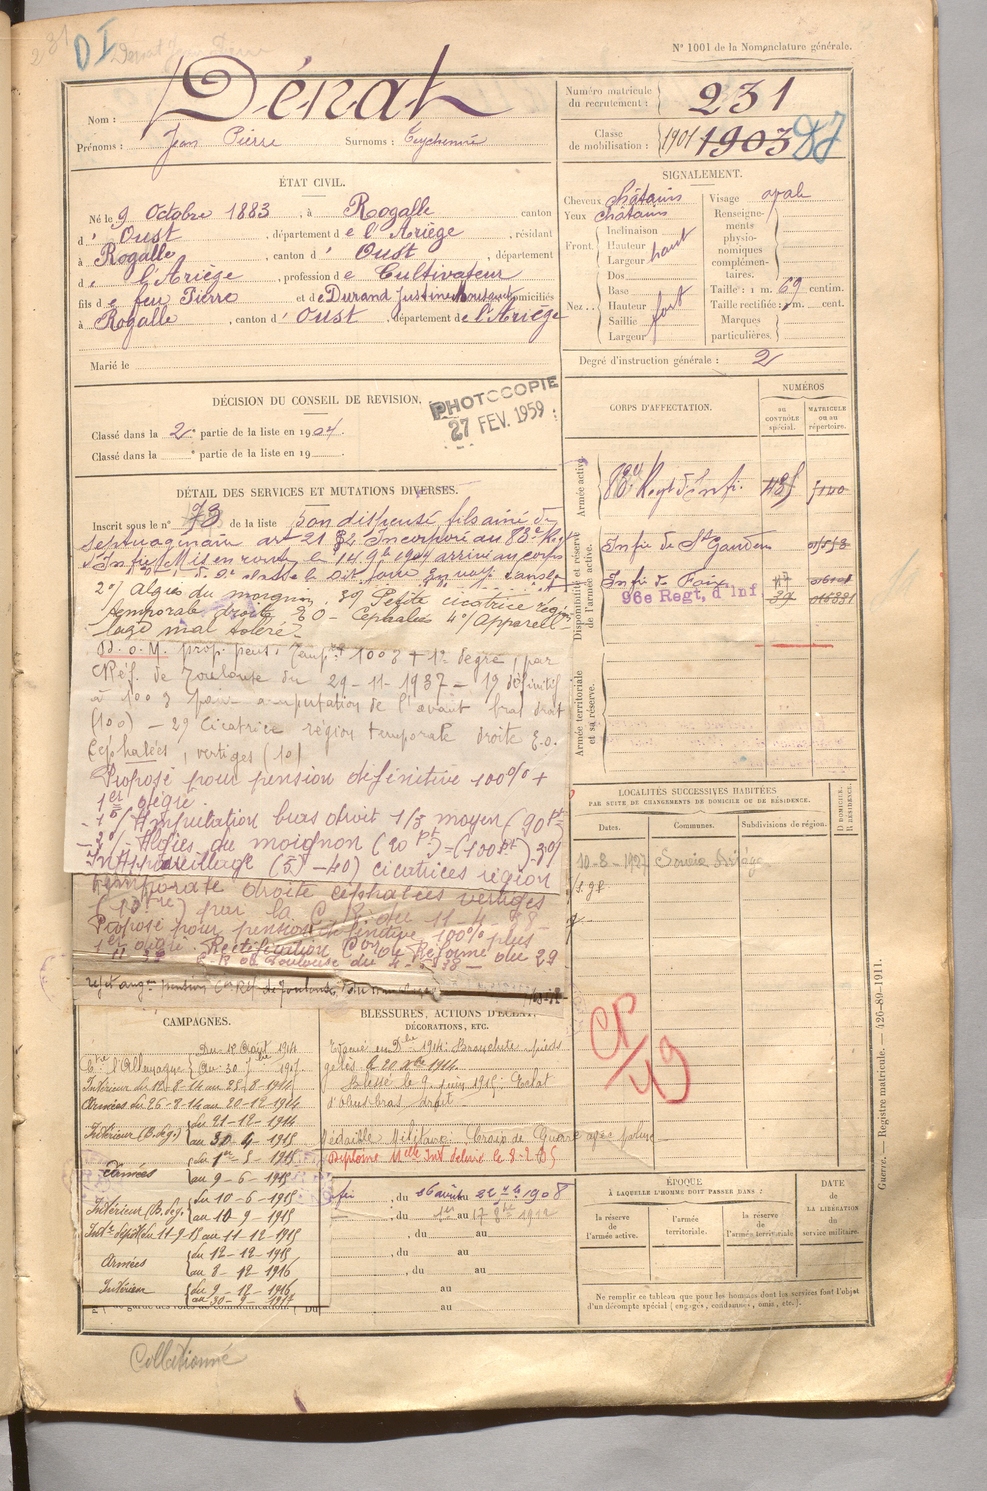 231
DI
Denat Jean Pierre
N° 1001 de la Nomenclature générale.
Nom : Dénat
Prénoms : Jean Pierre Surnoms : Eychenné
Numéro matricule du recrutement : 231
Classe de mobilisation : 1901 1903
ÉTAT CIVIL.
Né le 9 Octobre 1883, à Rogalle canton
d' Oust, département de l'Ariège, résidant
à Rogalle, canton d' Oust, département
de l'Ariège, profession de Cultivateur
fils de feu Pierre et de Durand Justine domiciliés
à Rogalle, canton d' Oust, département de l'Ariège
Marié le
SIGNALEMENT.
Cheveux châtains
Yeux châtains
Front.
Inclinaison
Hauteur
Largeur haut
Nez..
Dos
Base
Hauteur
Saillie fort
Largeur
Visage ovale
Renseignements physionomiques complémentaires.
Taille : 1 m. 69 centim.
Taille rectifiée : 1 m. cent.
Marques particulières.
Degré d'instruction générale : 2
DÉCISION DU CONSEIL DE REVISION,
Classé dans la 2e partie de la liste en 1904.
Classé dans la e partie de la liste en 19
PHOTOCOPIE
27 FEV. 1959
DÉTAIL DES SERVICES ET MUTATIONS DIVERSES.
Inscrit sous le n° 73 de la liste bon dispensé, fils ainé de
septuagénaire art 21 §2 Incorporé au 83e Régt
d'Infie Mis en route le 14 9bre 1904 arrivé au corps
2°/ Algies du moignon 3°/ Petite cicatrice région
temporale droite E O - Céphalées 4°/ Appareil-
lage mal toléré
D.O.M. prop. pens. temp. 100% + 1er degré, par
C Réf. de Toulouse du 29-11-1937 - 1° définitif
à 100% pour amputation de l'avant bras droit
(100) - 2° Cicatrice région temporale droite E.O.
Céphalées, vertiges (10)
Proposé pour pension définitive 100% +
1er degré.
- 1°/ Amputation bras droit 1/3 moyen (90 %)
- 2°/ Algies du moignon (20 %) = (100 %) 3°/
Inappareillage (5) - 4°) cicatrices région
temporale droite céphalées vertiges
par la C.R. du 11-4-38
Proposé pour pension définitive 100% plus
1er degré. Rectification Con de Réforme du 29
11-37 C.R. de Toulouse du 4-5-38
rejet aug. pension Con Réf de Toulouse
CORPS D'AFFECTATION.
NUMÉROS
au CONTRÔLE spécial.
MATRICULE ou au répertoire.
Armée active.
83e Regt d'Infie.
Disponibilité et réserve de l'armée active.
Infie de St Gaudens
Infie de Foix
96e Regt. d'Inf.
Armée territoriale et sa réserve.
LOCALITÉS SUCCESSIVES HABITÉES
PAR SUITE DE CHANGEMENTS DE DOMICILE OU DE RÉSIDENCE.
Dates. Communes. Subdivisions de région. D DOMICILE. R RÉSIDENCE.
10-8-1927 Soueix Ariège
CP/49
CAMPAGNES.
Cne l'Allemagne
Du 12 Août 1914
au 30 7bre 1917
Intérieur du 12-8-14 au 25-8-1914
Armées du 26-8-14 au 20-12-1914
Intérieur (B. deg.) du 21-12-1914
au 30-4-1915
Armées du 1er-5-1915
au 9-6-1915
Intérieur (B. deg.) du 10-6-1915
au 10-9-1915
Intr dépôt du 11-9-15 au 11-12-1915
Armées du 12-12-1915
au 8-12-1916
Intérieur du 9-12-1916
au 30-9-1917
BLESSURES, ACTIONS D'ÉCLAT,
DÉCORATIONS, ETC.
Evacué en Xbre 1914. Bronchite pieds
gelés le 20 Xbre 1914
Blessé le 9 juin 1915. Eclat
d'obus bras droit
Médaille Militaire. Croix de Guerre avec palme
Diplôme Mlle Inv délivré le 8-2-35
du 26 au 22 1908
du 1er au 17 8bre 1912
, du au
, du au
, du au
au
au
ÉPOQUE
À LAQUELLE L'HOMME DOIT PASSER DANS :
la réserve de l'armée active.
l'armée territoriale.
la réserve de l'armée territoriale
DATE DE LA LIBÉRATION du service militaire.
Ne remplir ce tableau que pour les hommes dont les services font l'objet
d'un décompte spécial (engagés, condamnés, omis, etc.).
Guerre. — Registre matricule. — 426-89-1911.
Collationné